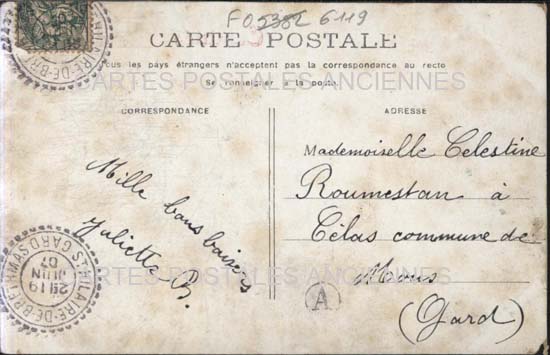 FO5382 6119
CARTE POSTALE
Tous les pays étrangers n'acceptent pas la correspondance au recto
Se renseigner à la poste.
CARTES POSTALES ANCIENNES
CORRESPONDANCE
ADRESSE
Mille bons baisers
Juliette B.
Mademoiselle Célestine
Roumestan à
Célas commune de
Mons
(Gard)
A
ST HILAIRE-DE-BRETHMAS
GARD
2E 19
JUIN
07
HILAIRE-DE-BRE
CARTES POSTALES ANCIENNES